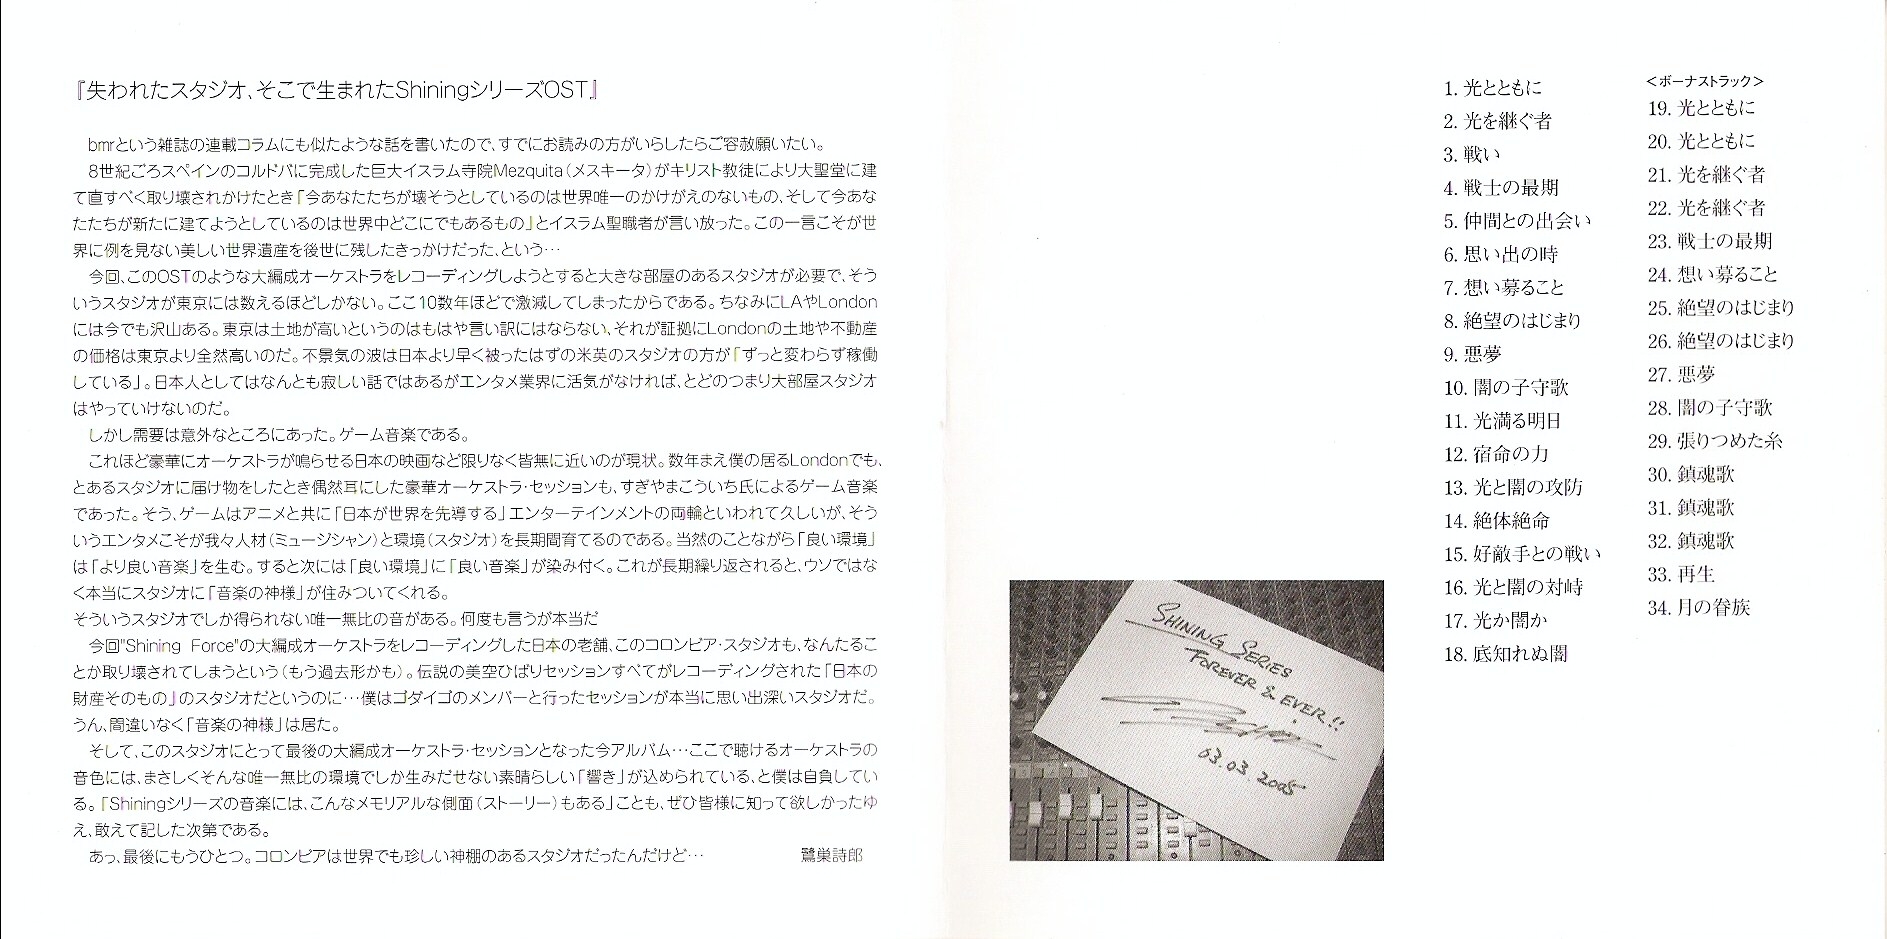 『失われたスタジオ、そこで生まれたShiningシリーズOST』
bmrという雑誌の連載コラムにも似たような話を書いたので、すでにお読みの方がいらしたらご容赦願いたい。
8世紀ごろスペインのコルドバに完成した巨大イスラム寺院Mezquita(メスキータ)がキリスト教徒により大聖堂に建
て直すべく取り壊されかけたとき「今あなたたちが壊そうとしているのは世界唯一のかけがえのないもの、そして今あな
たたちが新たに建てようとしているのは世界中どこにでもあるもの」とイスラム聖職者が言い放った。この一言こそが世
界に例を見ない美しい世界遺産を後世に残したきっかけだった、という…
今回、このOSTのような大編成オーケストラをレコーディングしようとすると大きな部屋のあるスタジオが必要で、そう
いうスタジオが東京には数えるほどしかない。ここ10数年ほどで激減してしまったからである。ちなみにLAやLondon
には今でも沢山ある。東京は土地が高いというのはもはや言い訳にはならない、それが証拠にLondonの土地や不動産
の価格は東京より全然高いのだ。不景気の波は日本より早く被ったはずの米英のスタジオの方が「ずっと変わらず稼働
している」。日本人としてはなんとも寂しい話ではあるがエンタメ業界に活気がなければ、とどのつまり大部屋スタジオ
はやっていけないのだ。
しかし需要は意外なところにあった。ゲーム音楽である。
これほど豪華にオーケストラが鳴らせる日本の映画など限りなく皆無に近いのが現状。数年まえ僕の居るLondonでも、
とあるスタジオに届け物をしたとき偶然耳にした豪華オーケストラ・セッションも、すぎやまこういち氏によるゲーム音楽
であった。そう、ゲームはアニメと共に「日本が世界を先導する」エンターテインメントの両輪といわれて久しいが、そう
いうエンタメこそが我々人材(ミュージシャン)と環境(スタジオ)を長期間育てるのである。当然のことながら「良い環境」
は「より良い音楽」を生む。すると次には「良い環境」に「良い音楽」が染み付く。これが長期繰り返されると、ウソではな
く本当にスタジオに「音楽の神様」が住みついてくれる。
そういうスタジオでしか得られない唯一無比の音がある。何度も言うが本当だ
今回"Shining Force"の大編成オーケストラをレコーディングした日本の老舗、このコロンビア・スタジオも、なんたるこ
とか取り壊されてしまうという(もう過去形かも)。伝説の美空ひばりセッションすべてがレコーディングされた「日本の
財産そのもの」のスタジオだというのに…僕はゴダイゴのメンバーと行ったセッションが本当に思い出深いスタジオだ。
うん、間違いなく「音楽の神様」は居た。
そして、このスタジオにとって最後の大編成オーケストラ・セッションとなった今アルバム…ここで聴けるオーケストラの
音色には、まさしくそんな唯一無比の環境でしか生みだせない素晴らしい「響き」が込められている、と僕は自負してい
る。「Shiningシリーズの音楽には、こんなメモリアルな側面(ストーリー)もある」ことも、ぜひ皆様に知って欲しかったゆ
え、敢えて記した次第である。
あっ、最後にもうひとつ。コロンビアは世界でも珍しい神棚のあるスタジオだったんだけど…
鷺巣詩郎
SHINING SERIES
FOREVER & EVER!!
03.03.2005
1. 光とともに
2. 光を継ぐ者
3. 戦い
4. 戦士の最期
5. 仲間との出会い
6. 思い出の時
7. 想い募ること
8. 絶望のはじまり
9. 悪夢
10. 闇の子守歌
11. 光満る明日
12. 宿命の力
13. 光と闇の攻防
14. 絶体絶命
15. 好敵手との戦い
16. 光と闇の対峙
17. 光か闇か
18. 底知れぬ闇
<ボーナストラック>
19. 光とともに
20. 光とともに
21. 光を継ぐ者
22. 光を継ぐ者
23. 戦士の最期
24. 想い募ること
25. 絶望のはじまり
26. 絶望のはじまり
27. 悪夢
28. 闇の子守歌
29. 張りつめた糸
30. 鎮魂歌
31. 鎮魂歌
32. 鎮魂歌
33. 再生
34. 月の眷族